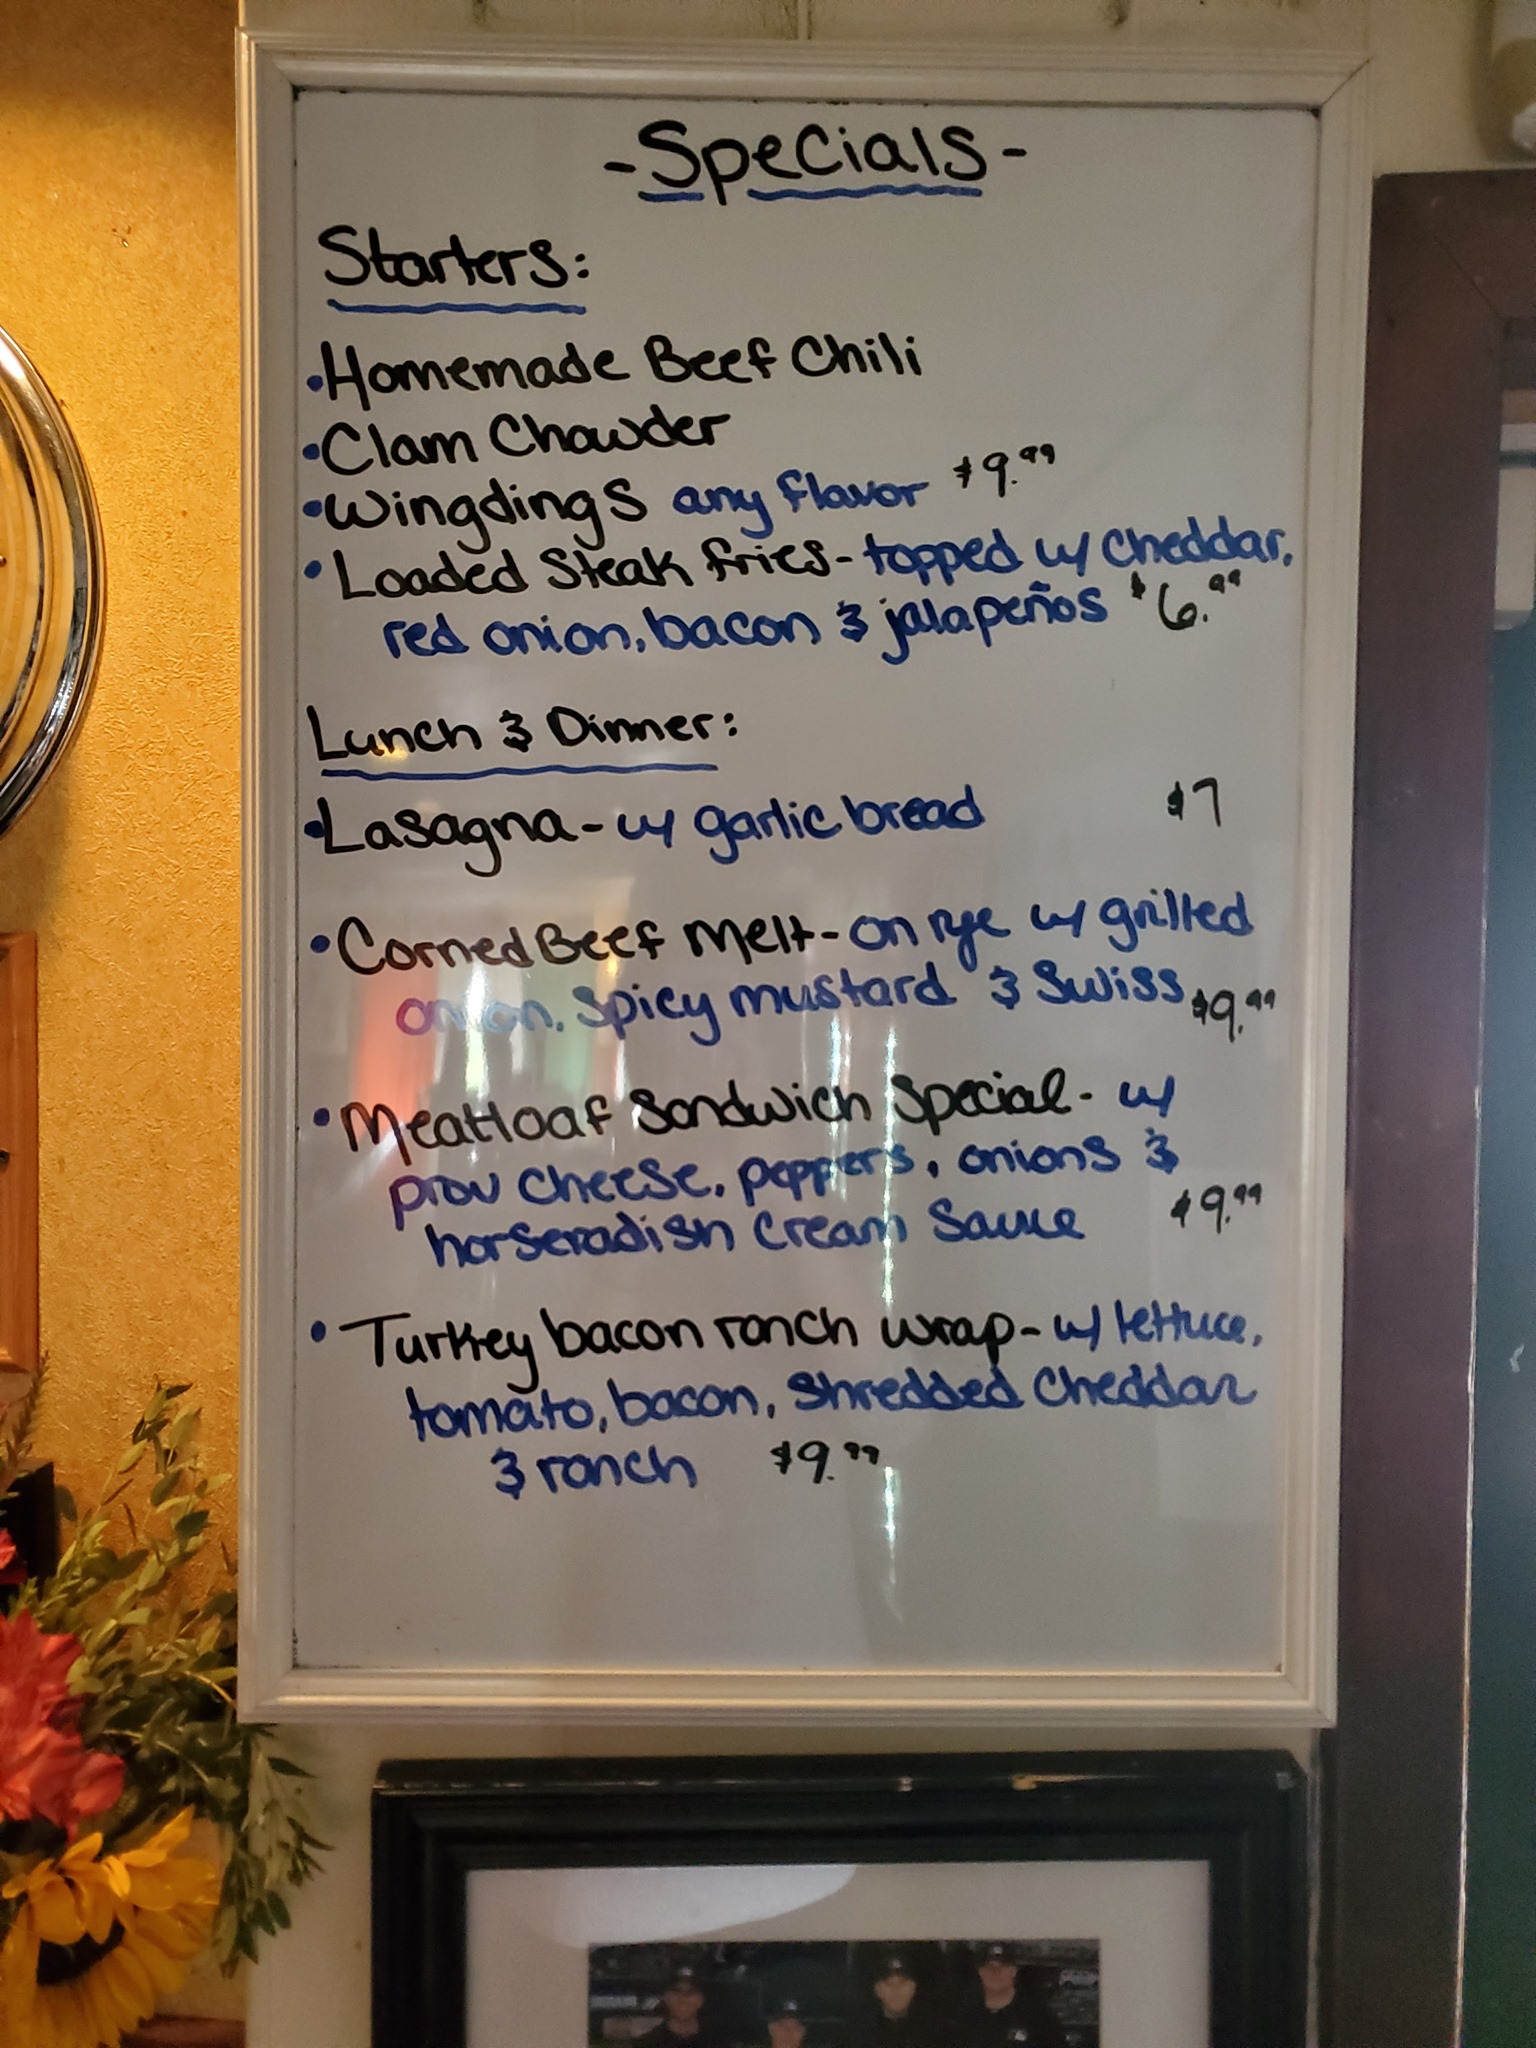 -Specials-
Starters:
•Homemade Beef Chili
•Clam Chowder
•Wingdings any flavor $9.99
•Loaded Steak fries- topped w/ cheddar,
red onion, bacon & jalapeños $6.99
Lunch & Dinner:
•Lasagna- w/ garlic bread $7
•Corned Beef Melt- on rye w/ grilled
onion, spicy mustard & Swiss $9.99
•Meatloaf Sandwich Special- w/
prov cheese, peppers, onions &
horseradish cream sauce $9.99
•Turkey bacon ranch wrap- w/ lettuce,
tomato, bacon, shredded cheddar
& ranch $9.99